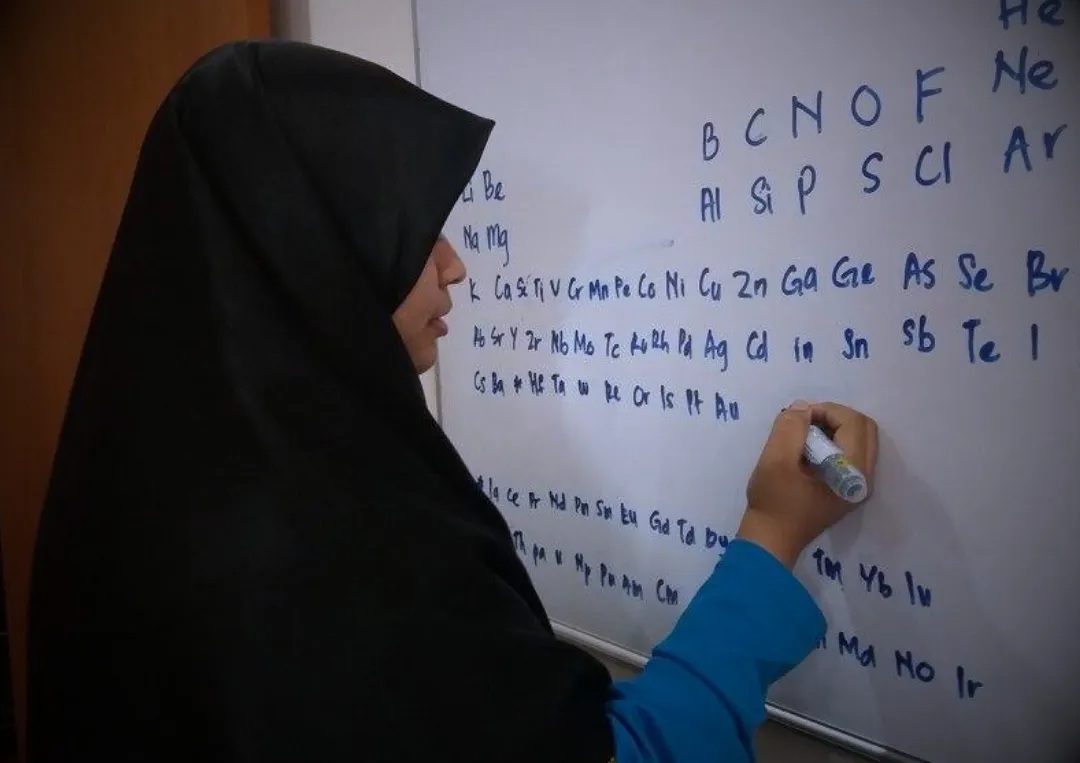 He
B C N O F Ne
Li Be Al Si P S Cl Ar
Na Mg
K Ca Sc Ti V Cr Mn Fe Co Ni Cu Zn Ga Ge As Se Br
Rb Sr Y Zr Nb Mo Tc Ru Rh Pd Ag Cd In Sn Sb Te I
Cs Ba * Hf Ta W Re Or Is Pt Au
* la Ce Pr Nd Pm Sm Eu Gd Td Dy Tm Yb lu
Th Pa U Np Pu Am Cm Md No lr